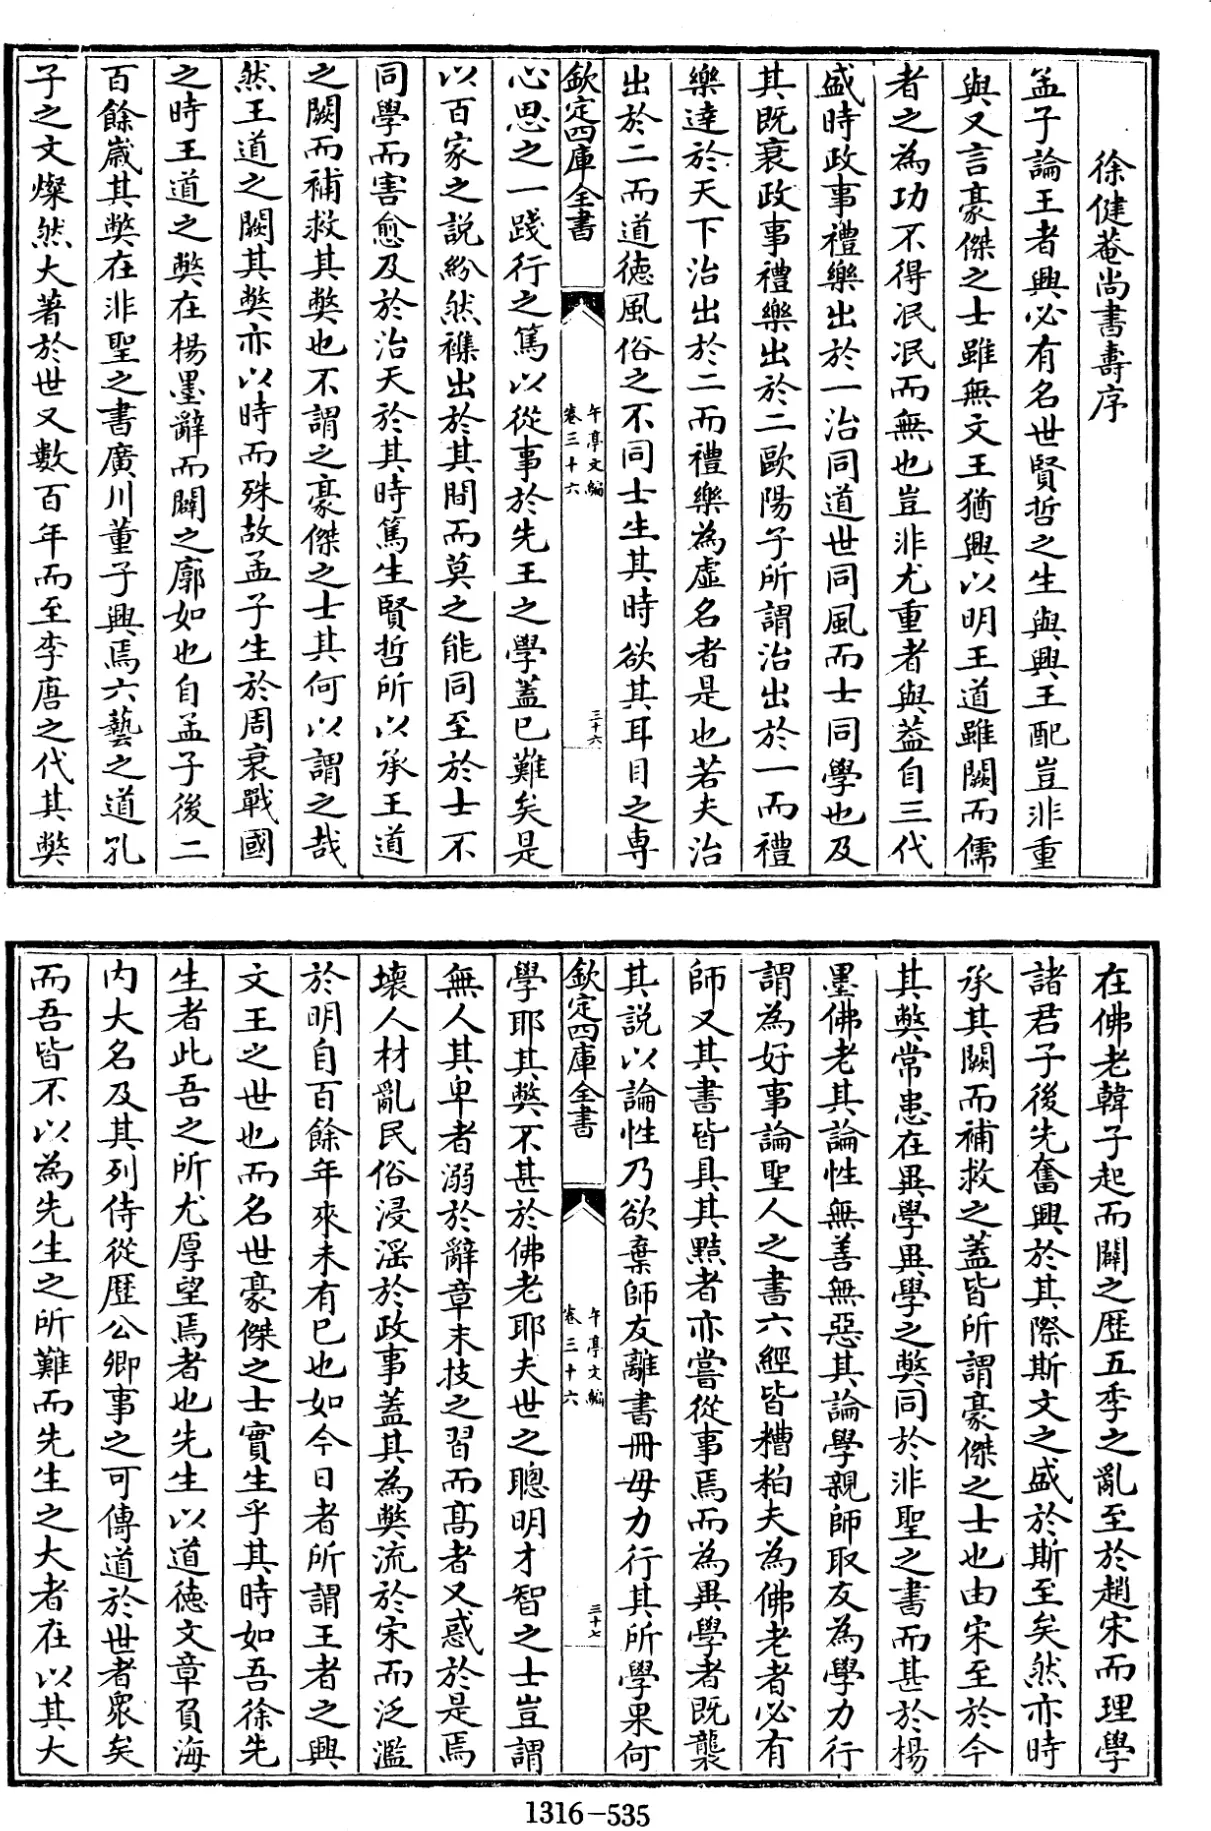 徐健菴尚書壽序
孟子論王者興必有名世賢哲之生與興王配豈非重
與又言豪傑之士雖無文王猶興以明王道雖闕而儒
者之為功不得泯泯而無也豈非尤重者與蓋自三代
盛時政事禮樂出於一治同道世同風而士同學也及
其既衰政事禮樂出於二歐陽子所謂治出於一而禮
樂達於天下治出於二而禮樂為虛名者是也若夫治
出於二而道德風俗之不同士生其時欲其耳目之専
欽定四庫全書
午亭文編
卷三十六
三十六
心思之一踐行之篤以從事於先王之學蓋已難矣是
以百家之説紛然襍出於其間而莫之能同至於士不
同學而害愈及於治天於其時篤生賢哲所以承王道
之闕而補救其弊也不謂之豪傑之士其何以謂之哉
然王道之闕其弊亦以時而殊故孟子生於周衰戰國
之時王道之弊在楊墨辭而闢之廓如也自孟子後二
百餘嵗其弊在非聖之書廣川董子興焉六藝之道孔
子之文燦然大著於世又數百年而至李唐之代其弊
在佛老韓子起而闢之歴五季之亂至於趙宋而理學
諸君子後先奮興於其際斯文之盛於斯至矣然亦時
承其闕而補救之蓋皆所謂豪傑之士也由宋至於今
其弊常患在異學異學之弊同於非聖之書而甚於楊
墨佛老其論性無善無惡其論學親師取友為學力行
謂為好事論聖人之書六經皆糟粕夫為佛老者必有
師又其書皆具其黠者亦嘗從事焉而為異學者既襲
其説以論性乃欲棄師友離書冊毋力行其所學果何
欽定四庫全書
午亭文編
卷三十六
三十七
學耶其弊不甚於佛老耶夫世之聰明才智之士豈謂
無人其卑者溺於辭章末技之習而髙者又惑於是焉
壊人材亂民俗浸滛於政事蓋其為弊流於宋而泛濫
於明自百餘年來未有已也如今日者所謂王者之興
文王之世也而名世豪傑之士實生乎其時如吾徐先
生者此吾之所尤厚望焉者也先生以道德文章負海
内大名及其列侍從歴公卿事之可傳道於世者衆矣
而吾皆不以為先生之所難而先生之大者在以其大
1316-535